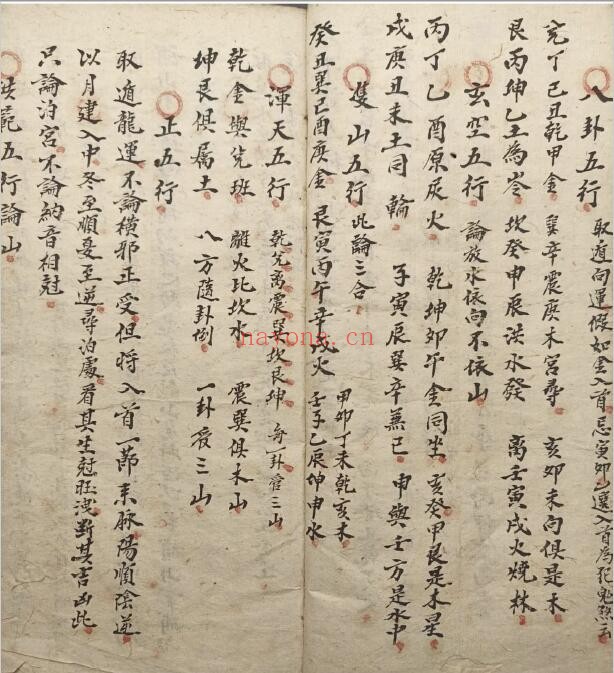 八卦五行 取遁向運假如金入首忌寅卯山選入首為犯鬼煞云
兊丁巳丑乾甲金 巽辛震庚木宮尋 亥卯未向俱是木
艮丙坤乙土為岑 坎癸申辰洪水發 离壬寅戌火燒林
玄空五行 論放水依向不依山
丙丁乙酉原灰火 乾坤卯午金同坐 亥癸甲艮是木星
戌庚丑未土同輪 子寅辰巽辛兼巳 申與壬方是水中
隻山五行 此論三合
癸丑巽巳酉庚金 艮寅丙午辛戌火 甲卯丁未乾亥木 壬子乙辰坤申水
渾天五行 乾兊离震巽坎艮坤 每一卦管三山
乾金與兊班 離火比坎水 震巽俱木山
坤艮俱属土 八方隨卦例 一卦管三山
正五行
取遁龍運不論橫邪正受但将入首一節来脉陽順陰逆
以月建入中冬至順夏至逆尋泊處看其生尅旺洩断其吉凶此
只論泊宮不論納音相尅
洪範五行論山
nayona.cn